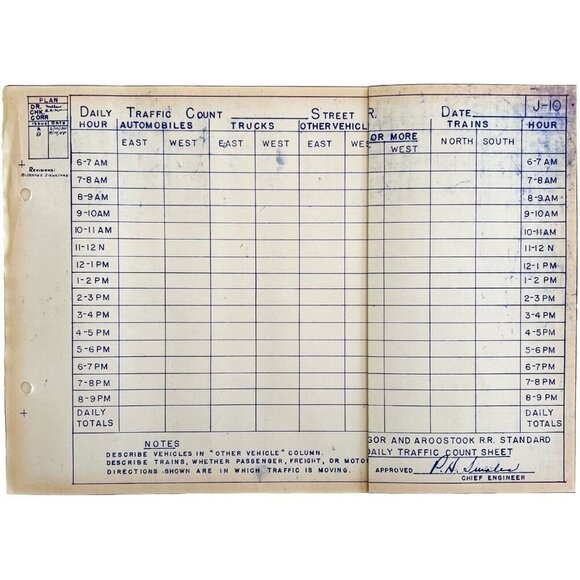 PLAN
DR.
CHK
CORR
ISSUE DATE
A
REVISIONS:
J-10
DAILY TRAFFIC COUNT STREET R. DATE
HOUR AUTOMOBILES TRUCKS OTHER VEHICL OR MORE TRAINS HOUR
EAST WEST EAST WEST EAST WE WEST NORTH SOUTH
6-7 AM 6-7 AM
7-8 AM 7-8 AM
8-9 AM 8-9 AM
9-10 AM 9-10 AM
10-11 AM 10-11 AM
11-12 N 11-12 N
12-1 PM 12-1 PM
1-2 PM 1-2 PM
2-3 PM 2-3 PM
3-4 PM 3-4 PM
4-5 PM 4-5 PM
5-6 PM 5-6 PM
6-7 PM 6-7 PM
7-8 PM 7-8 PM
8-9 PM 8-9 PM
DAILY TOTALS DAILY TOTALS
NOTES
DESCRIBE VEHICLES IN "OTHER VEHICLE" COLUMN.
DESCRIBE TRAINS, WHETHER PASSENGER, FREIGHT, OR MOTO
DIRECTIONS SHOWN ARE IN WHICH TRAFFIC IS MOVING.
GOR AND AROOSTOOK R.R. STANDARD
DAILY TRAFFIC COUNT SHEET
APPROVED
CHIEF ENGINEER